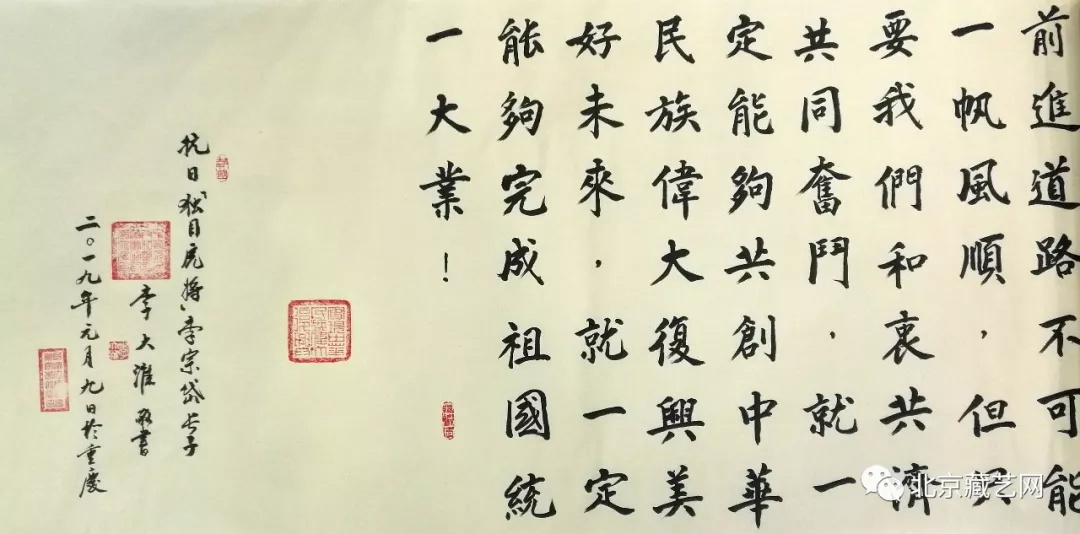 前進道路不可能
一帆風順，但只
要我們和衷共濟
共同奮鬥，就一
定能夠共創中華
民族偉大復興美
好未來，就一定
能夠完成祖國統
一大業！
抗日“獨目虎將”李宗岱長子
李大維敬書
二〇一九年元月九日於重慶
北京藏艺网